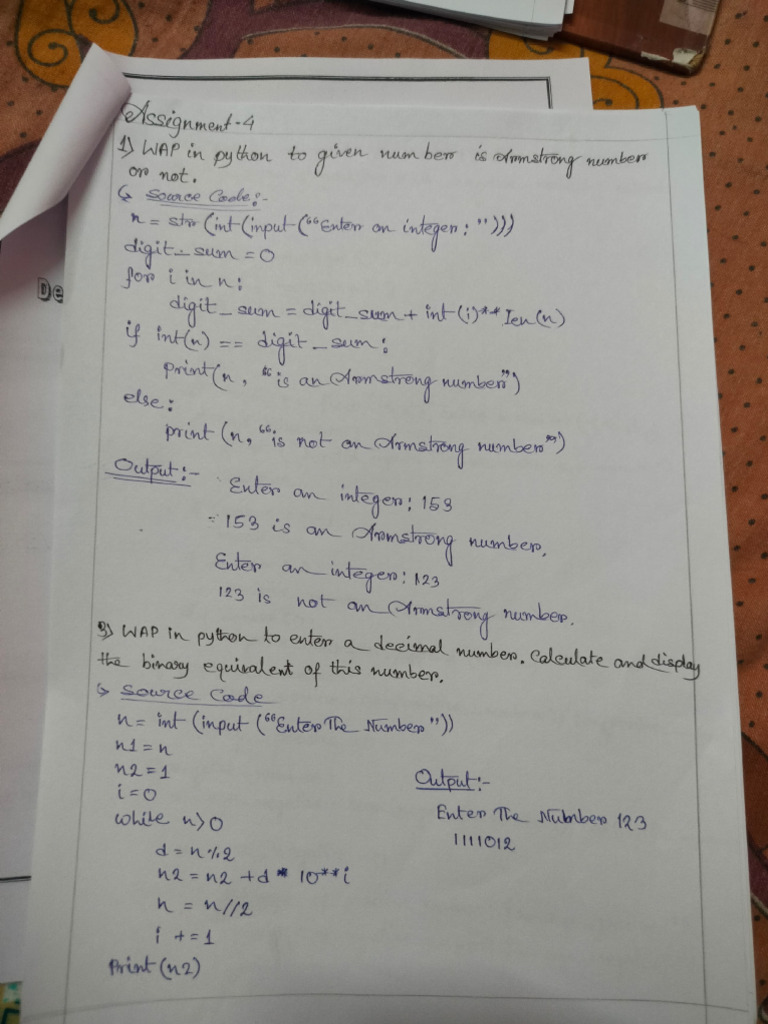 Assignment-4
1) WAP in python to given number is Armstrong number
or not.
↳ Source Code:-
n = str (int (input ("Enter an integer: ")))
digit_sum = 0
for i in n:
digit_sum = digit_sum + int(i)** len(n)
if int(n) == digit_sum:
print(n, "is an Armstrong number")
else:
print (n, "is not an Armstrong number")
Output:-
Enter an integer: 153
153 is an Armstrong number.
Enter an integer: 123
123 is not an Armstrong number.
3) WAP in python to enter a decimal number. Calculate and display
the binary equivalent of this number.
↳ Source Code
n = int (input ("Enter The Number"))
n1 = n
n2 = 1
i = 0
while n>0
d = n%2
n2 = n2 + d * 10**i
n = n//2
i += 1
print(n2)
Output:-
Enter The Number 123
1111012
De